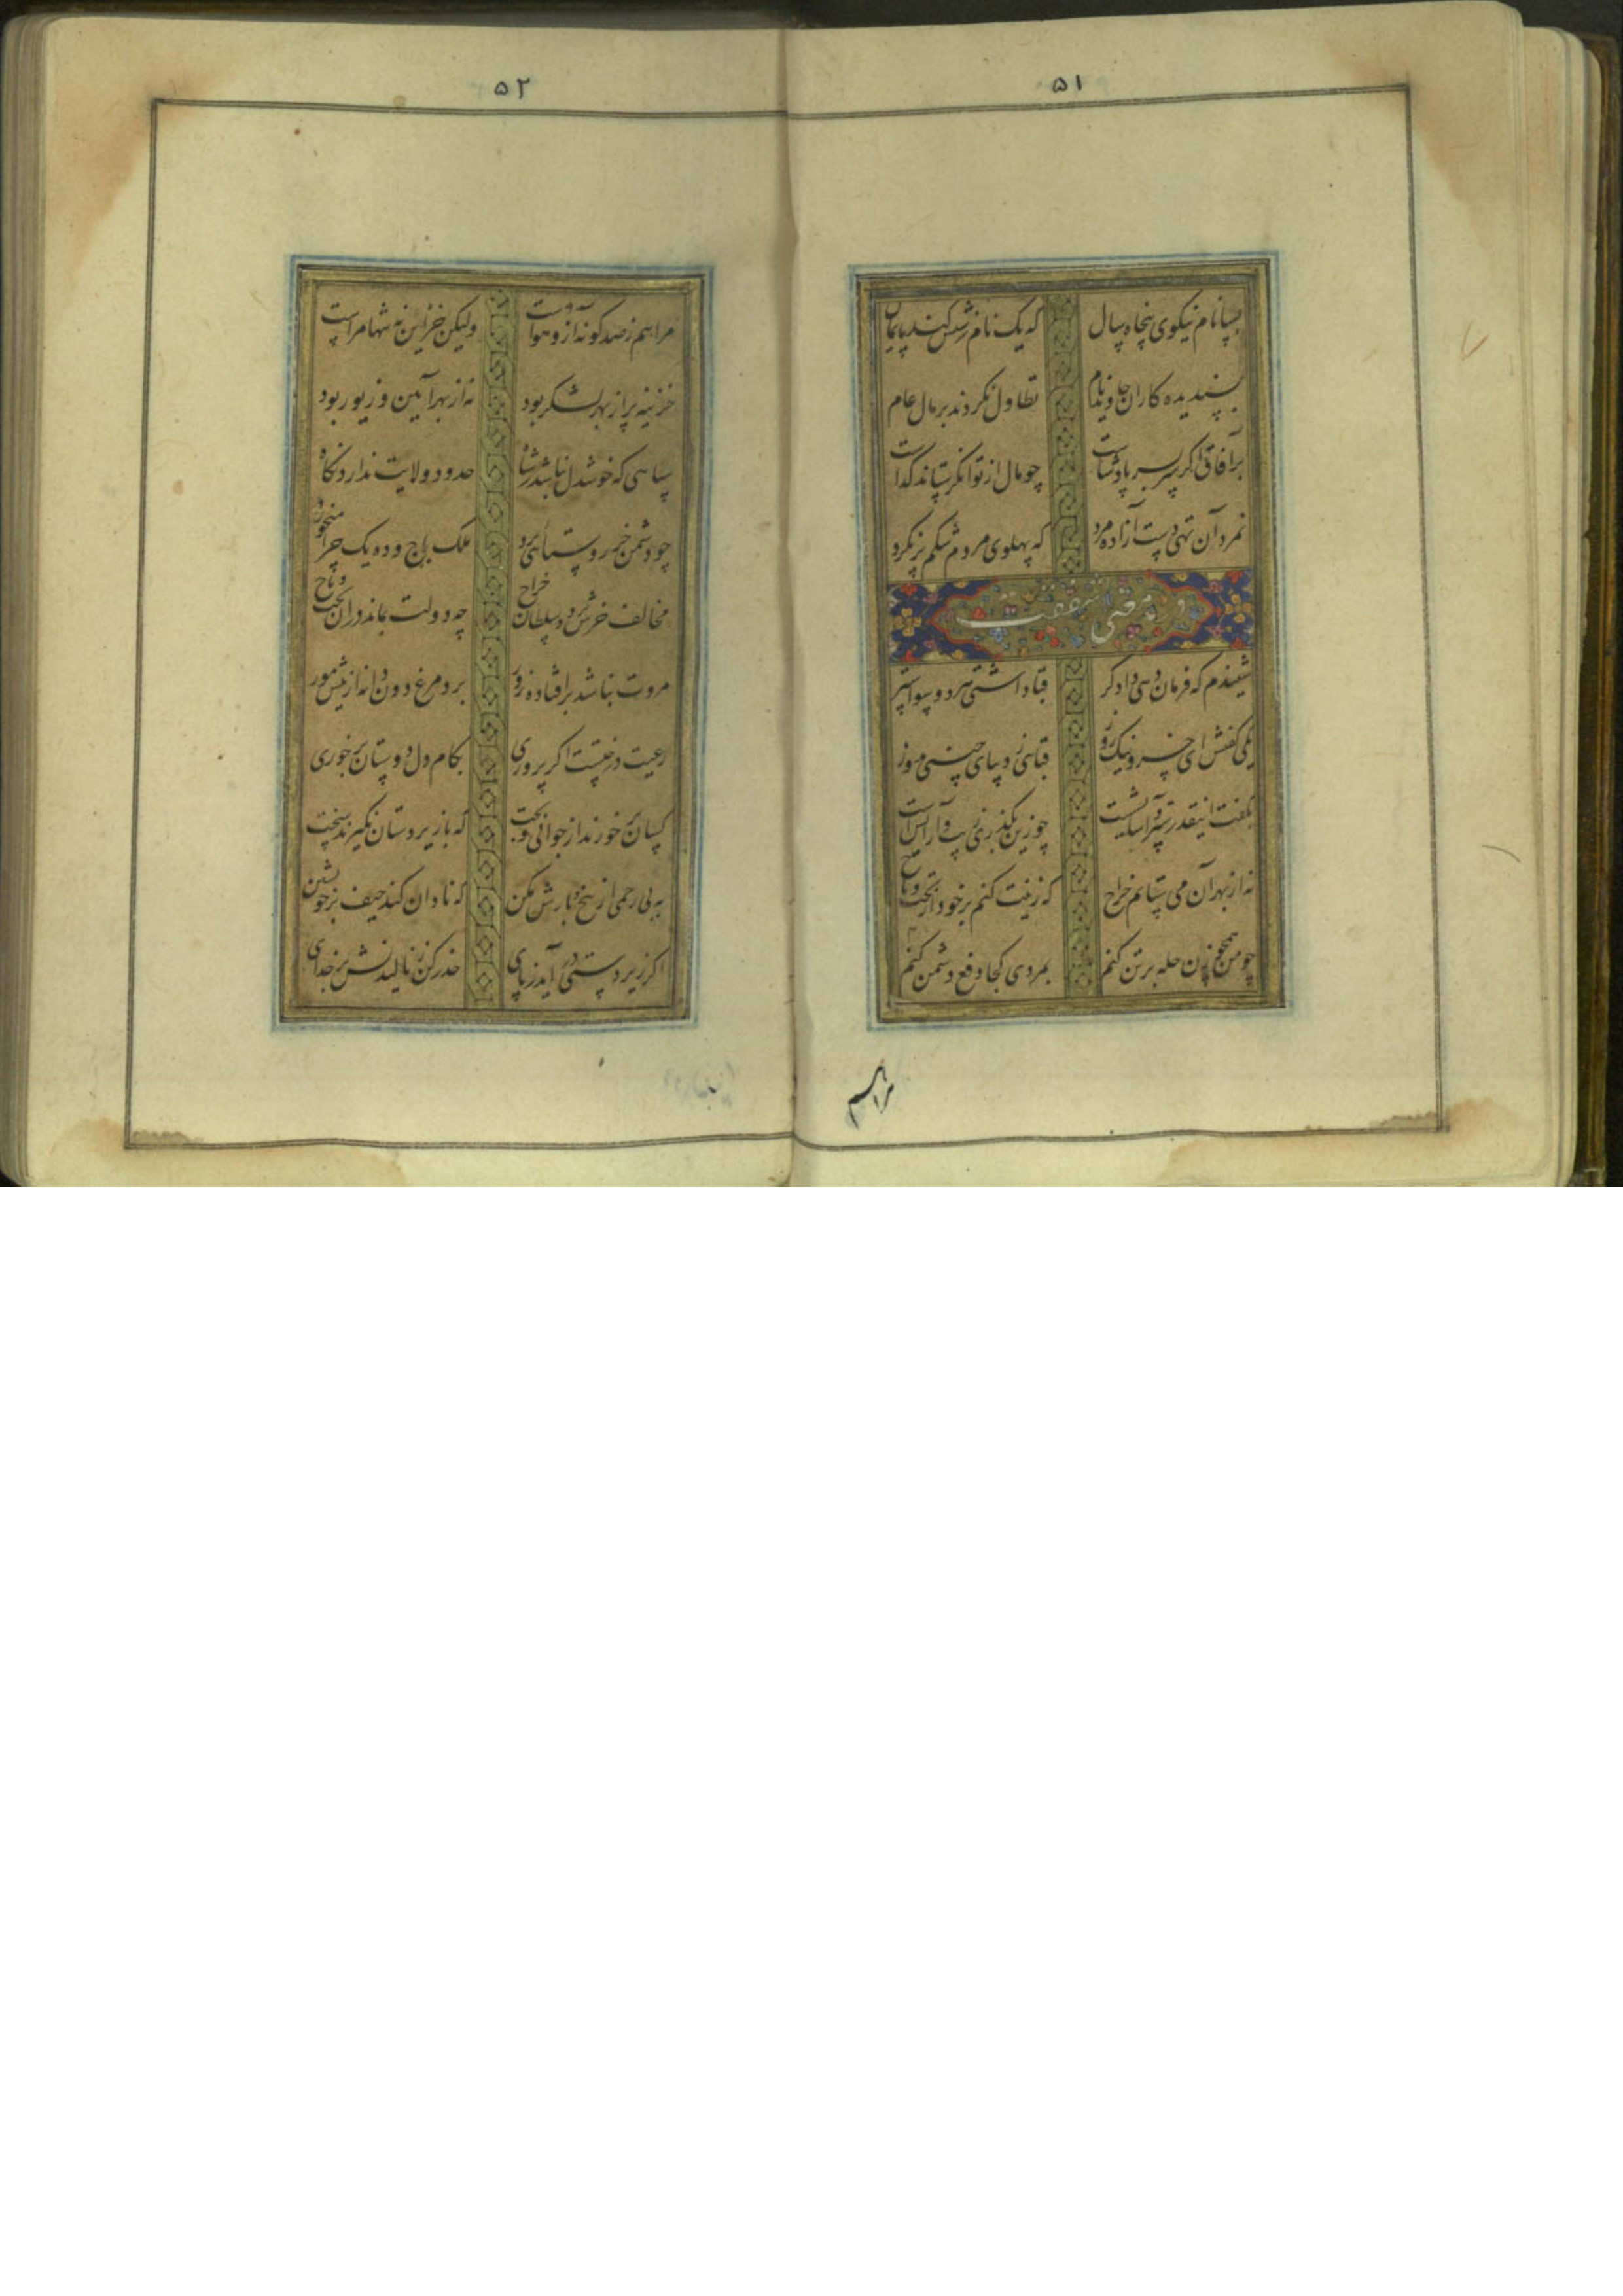 ۵۱
بسا نام نیکوی پنجاه سال که یک نام زشتش کند پایمال
پسندیده کاران جاوید نام تطاول نکردند بر مال عام
بر آفاق اگر سر بسر پادشاست چو مال از توانگر ستاند گداست
نمرد آن تهی دست آزاده مرد که پهلوی مردم شکم پر نکرد
در معنی شفقت
شنیدم که فرماندهی دادگر قبا داشتی هر دو رو آستر
یکی گفتش ای خسرو نیک روز قبائی ز دیبای چینی بدوز
بگفت اینقدر ستر و آسایشست چو زین بگذری زیب و آرایش است
نه از بهر آن می ستانم خراج که زینت کنم بر خود از تخت و تاج
چو من همچو زن حله بر تن کنم بمردی کجا دفع دشمن کنم
مراهم
۵۲
مرا هم ز صد گونه آز و هواست ولیکن خزاین نه تنها مراست
خزینه پر از بهر لشکر بود نه از بهر آیین و زیور بود
سپاهی که خوشدل نباشد ز شاه ندارد حدود ولایت نگاه
چو دشمن خر روستائی برد ملک باج و ده یک چرا میخورد
مخالف خرش برد و سلطان خراج چه دولت بماند در آن تخت و تاج
مروت نباشد بر افتاده زور برد مرغ دون دانه از پیش مور
رعیت درختست اگر پروری بکام دل دوستان بر خوری
کسان بر خورند از جوانی و بخت که با زیردستان نگیرند سخت
به بی رحمی از بیخ و بارش مکن که نادان کند حیف بر خویشتن
اگر زیردستی در آید ز پای حذر کن ز نالیدنش بر خدای